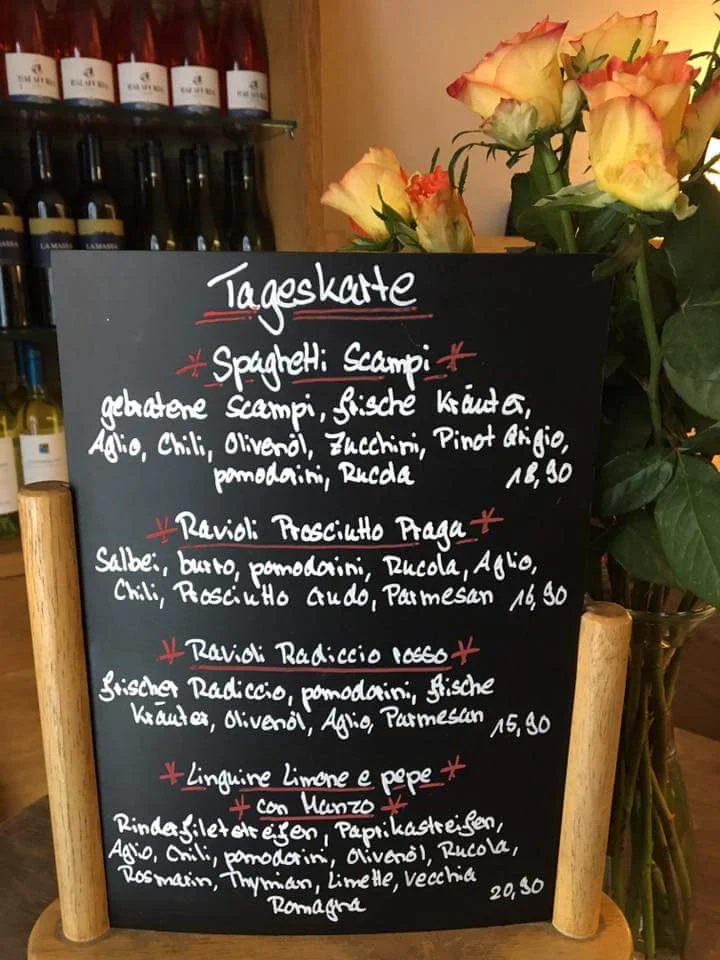 LA MASSA
LA MASSA
Tageskarte
* Spaghetti Scampi *
gebratene Scampi, frische Kräuter,
Aglio, Chili, Olivenöl, Zucchini, Pinot Grigio,
pomodorini, Rucola 18,90
* Ravioli Prosciutto Praga *
Salbei, burro, pomodorini, Rucola, Aglio,
Chili, Prosciutto crudo, Parmesan 16,90
* Ravioli Radiccio rosso *
frischer Radiccio, pomodorini, frische
Kräuter, Olivenöl, Aglio, Parmesan 15,90
* Linguine Limone e pepe *
* con Manzo *
Rinderfiletstreifen, Paprikastreifen,
Aglio, Chili, pomodorini, Olivenöl, Rucola,
Rosmarin, Thymian, Limette, Vecchia
Romagna 20,90